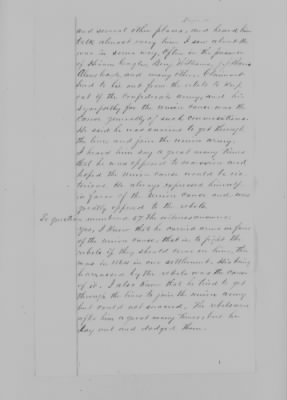 and several other places, and heard him
talk almost every time I saw about the
war in some way. Often in the presence
of Hiram Engler, Benj Williams, Jeff
and many others. Claimant
had to lie out from the rebels to keep
out of the confederate army, and his
sympathy for the union cause was the
cause generally of such conversations.
He said he was anxious to get through
the lines and join the union army.
I heard him say a great many times
that he was opposed to secession and
hoped the union cause would be vic-
torious. He always expressed himself
in favor of the union cause and was
greatly opposed to the rebels.
To question numbered 57 the witness answers
Yes, I know that he carried arms in favor
of the union cause, that is to fight the
rebels if they should come on him, this
was in 1864 in our settlement. His being
harrassed by the rebels was the cause
of it. I also know that he tried to get
through the lines to join the union army
but could not succeed. The rebels were
after him a great many times, but he
lay out and dodged them.